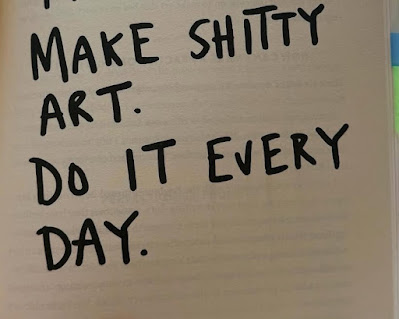 MAKE SHITTY
ART.
DO IT EVERY
DAY.